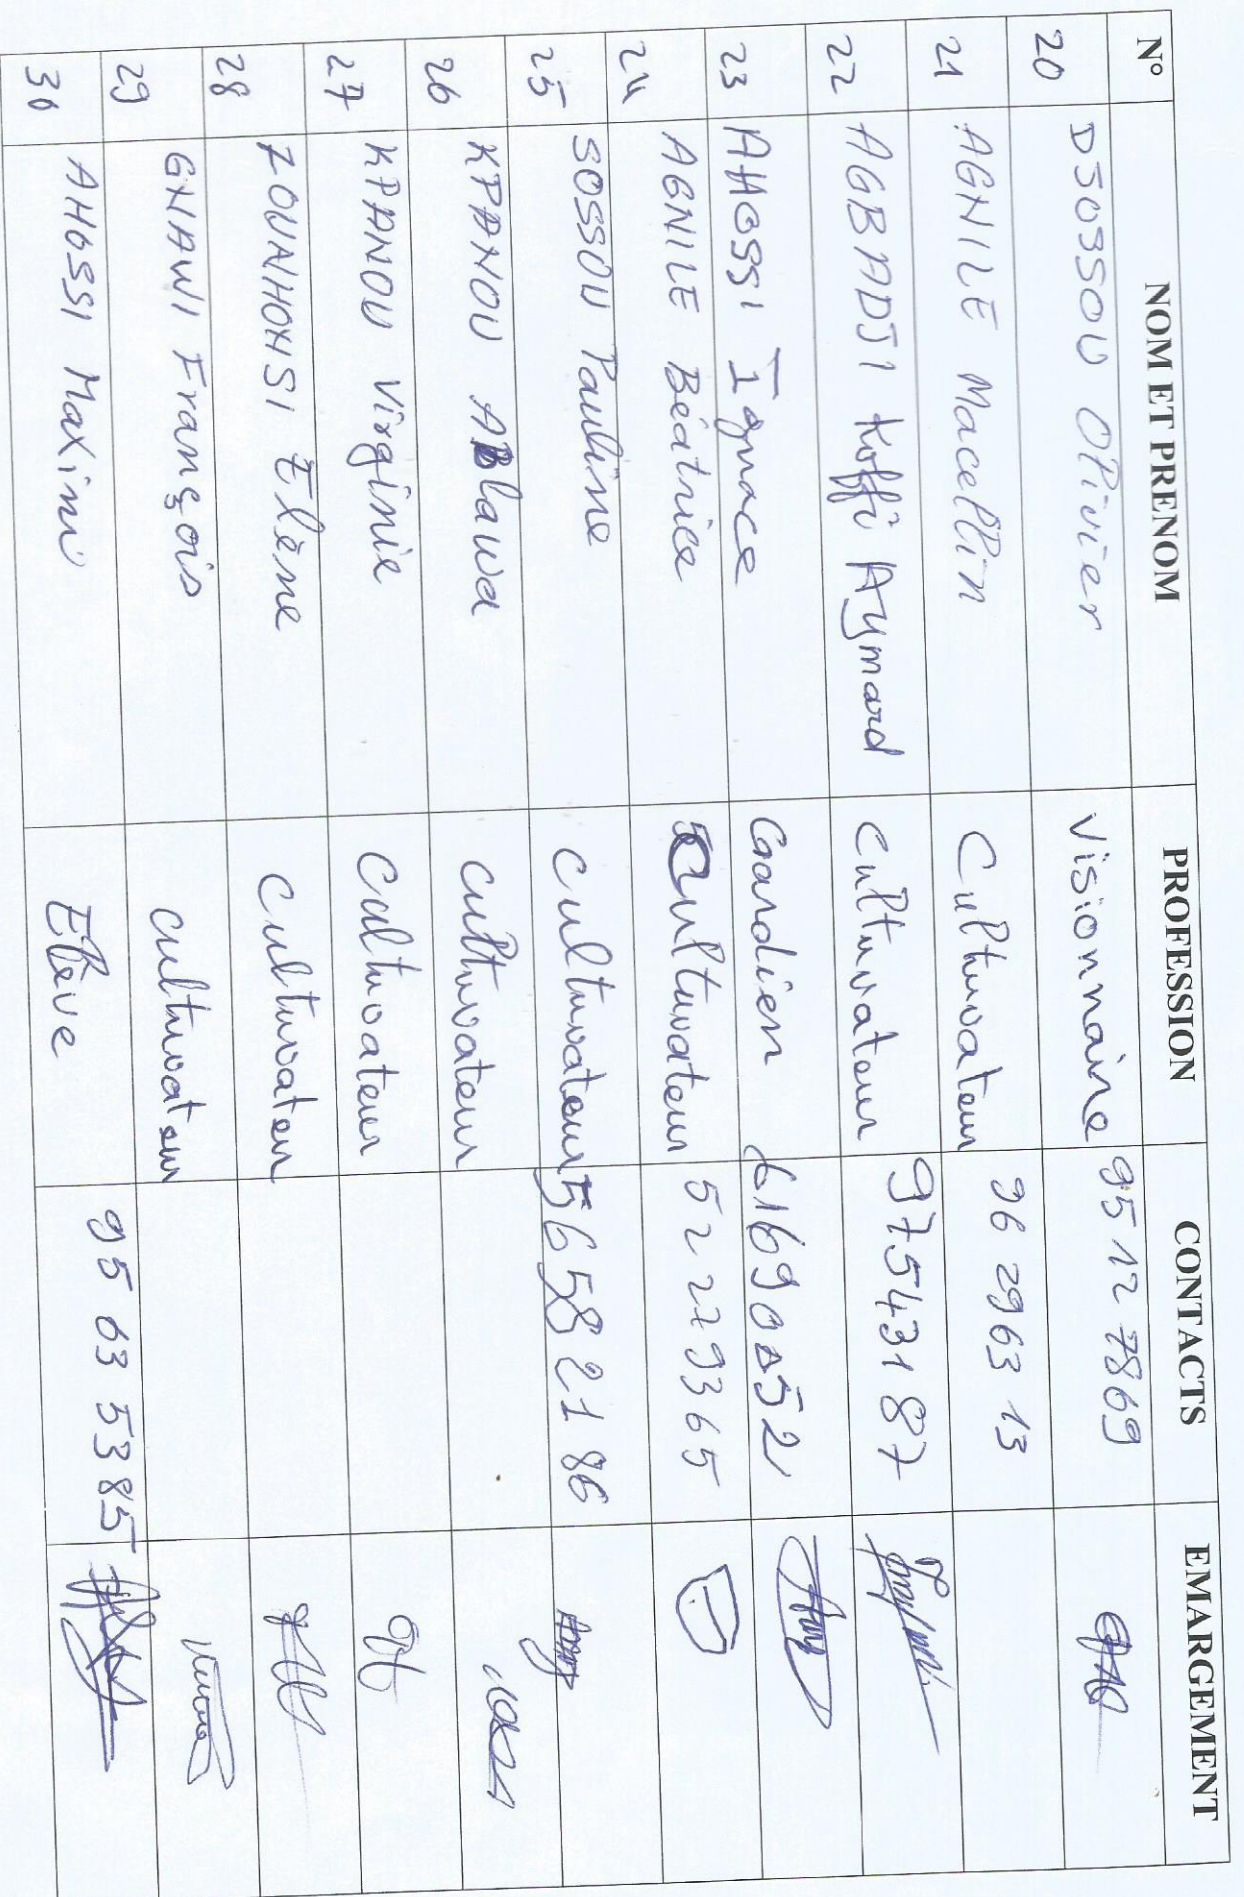 N° NOM ET PRENOM PROFESSION CONTACTS EMARGEMENT
20 DJOSSOU Olivier Visionnaire 95 12 7869
21 AGNILE Macellin Cultivateur 96 2963 13
22 AGBADJI Koffi Aymard Cultivateur 97543187
23 AHOSSI Ignace Gardien
24 AGNILE Béatrice Cultivateur 52279365
25 SOSSOU Pauline Cultivateur 56582186
26 KPANOU ABlawa Cultivateur
27 KPANOU Virginie Cultivateur
28 ZOUNHONSI Elène Cultivateur
29 GNAWI François Cultivateur
30 AHOSSI Maximi Elève 95 63 5385